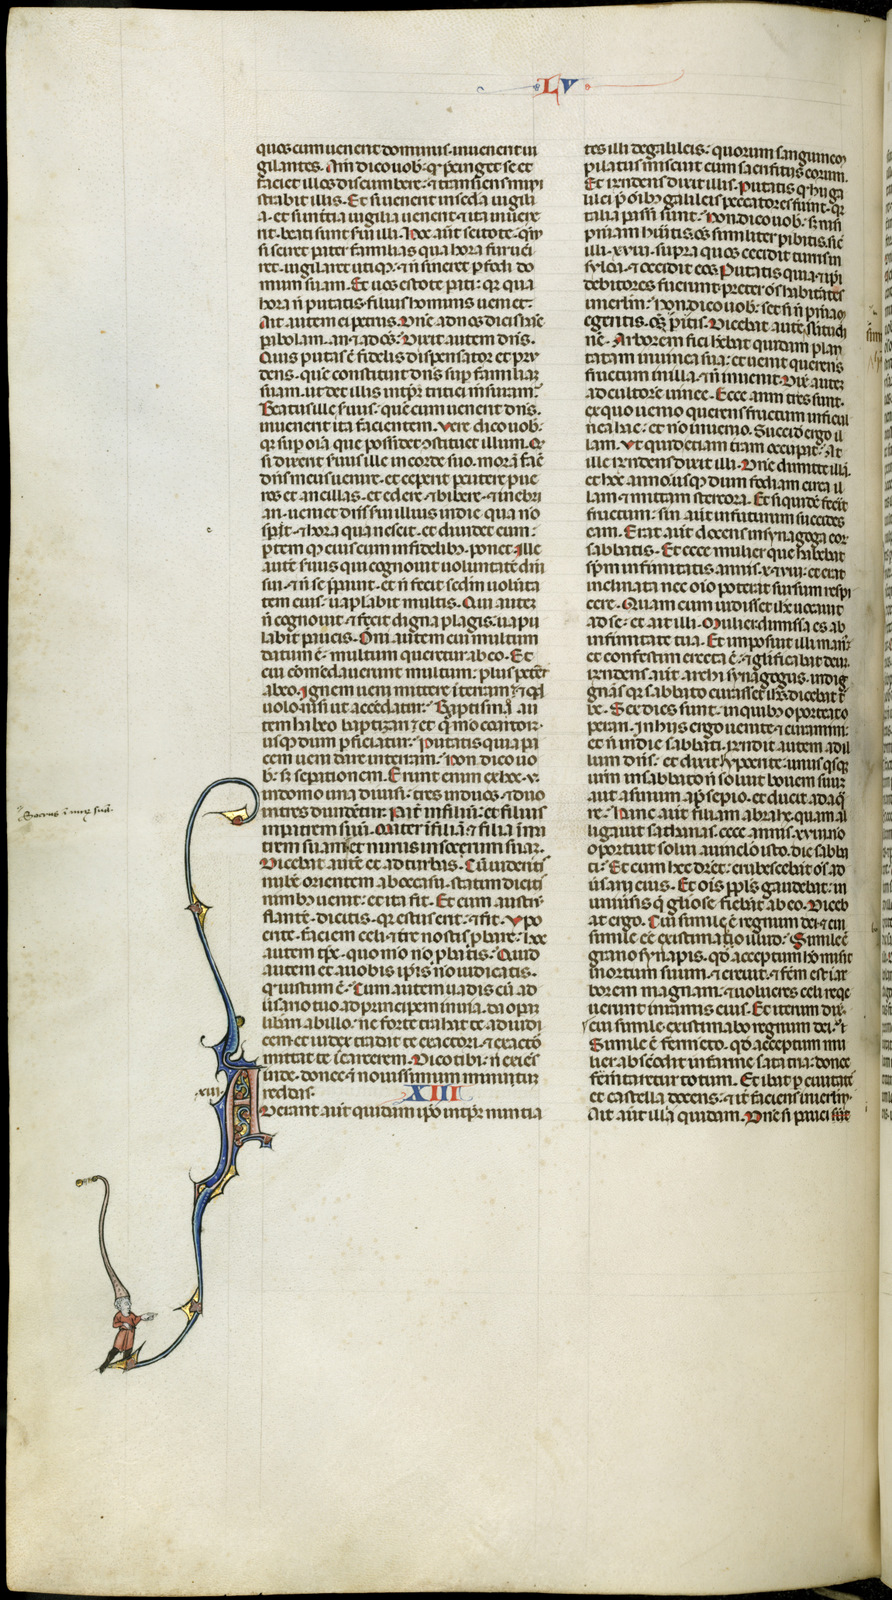 LV
quos cum uenerit dominus. inuenerit ui
gilantes. Am dico uob. qr pcinget se et
faciet illos discumbere. et transiens mini
strabit illis. Et si uenerit in scda uigili
a. et si in tertia uigilia uenerit. et ita inuene
rit. beati sunt serui illi. Hoc aut scitote. qm
si sciret pater familias qua hora fur ueni
ret. uigilaret utiq. et n sineret pfodi do
mum suam. Et uos estote pati. qr qua
hora n putatis. filius hominis ueniet.
Ait autem ei petrus. Dne ad nos dicis hanc
pabolam. an et ad os. Dixit autem dns.
Quis putas e fidelis dispensator et pru
dens. que constituit dns sup familiam
suam. ut det illis in tpr tritici msuram.
Beatus ille seruus. que cum uenerit dns.
inuenerit ita facientem. Vere dico uob.
qr sup oia que possidet constituet illum. Q
si dixerit seruus ille in corde suo. mora fac
dns meus uenire. et ceperit pcutere pue
ros et ancillas. et edere et bibere et inebri
ari. ueniet dns serui illius in die qua no
sperat. et hora qua nescit. et diuidet eum.
ptem q eius cum infidelib ponet. Ille
aute seruus qui cognouit uoluntate dni
sui. et n se pparauit. et n fecit scdm uolunta
tem eius. uaplabit multis. Qui autez
n cognouit et fecit digna plagis. uapu
labit paucis. Omi autem cui multum
datum e. multum queretur ab eo. Et
cui comedauerunt multum. plus petent
ab eo. Ignem ueni mittere i terram. et qd
uolo nisi ut accendatur. Baptismo au
tem habeo baptizari. et qmo coartor
usq dum pficiatur. Putatis quia pa
cem ueni dare in terram. Non dico uo
b. sz sepationem. Erunt enim ex hoc. v.
in domo una diuisi. tres in duos. et duo
in tres diuidentur. Pat in filiu. et filius
in patrem suu. Mater i filia. et filia in ma
trem sua. et nurus in socrum suaz.
Dicebat aute et ad turbas. Cu uideritis
nube orientem ab occasu. statim dicitis
nimbus uenit. et ita fit. Et cum austru
flante. dicitis. qr estus erit. et fit. Ypo
crite. faciem celi et tre nostis pbare. hoc
autem tps. quomo no pbatis. Quid
autem et a uobis ipis no iudicatis.
q iustum e. Cum autem uadis cu ad
usario tuo ad principem in uia. da opam
libari ab illo. ne forte trahat te ad iudi
cem. et iudex tradat te exactori. et exacto
mittat te i carcerem. Dico tibi. n exies
inde. donec et nouissimum minutum
reddas. XIII
Aderant aut quidam ipo in tpr nuntia
tes illi de galileis. quorum sanguinem
pilatus miscuit cum sacrificiis eorum.
Et rndens dixit illis. Putatis q hii ga
lilei p oib galileis peccatores fuint. qr
talia passi sunt. Non dico uob. sz nisi
pniam hueritis. os similiter pibitis. sic
illi. xviii. supra quos cecidit turris in
syloa. et occidit eos. Putatis quia et ipi
debitores fuerint. preter os habitates
in ierlm. Non dico uob. set si n pniam
egeritis. os pitis. Dicebat aute similitudi
ne. Arborem fici hebat quidam plan
tatam in uinea sua. et uenit querens
fructum in illa. et n inuenit. Dix autez
ad cultore uinee. Ecce anni tres sunt.
ex quo uenio querens fructum in ficul
nea hac. et no inuenio. Succide ergo il
lam. Vt quid etiam tram occupat. At
ille rndens dixit illi. Dne dimitte illa
et hoc anno. usq dum fodiam circa il
lam et mittam stercora. Et siquide fecit
fructum. sin aut in futurum succides
eam. Erat aut docens in synagoga eor
sabbatis. Et ecce mulier que habebat
spm infirmitatis annis. x. et viii. et erat
inclinata nec oio poterat sursum respi
cere. Quam cum uidisset ihc. uocauit
ad se. et ait illi. Mulier dimissa es ab
infirmitate tua. Et imposuit illi man.
et confestim erecta e. et glificabat deu.
Rndens aut archisynagogus. indig
gnas qr sabbato curasset ihs. dicebat t
be. Sex dies sunt. in quib oportet o
perari. In hiis ergo uenite et curamini.
et n in die sabbati. Rndit autem ad il
lum dns. et dixit. ypocrite. unus qsq
urm in sabbato n soluit bouem suum
aut asinum a psepio. et ducit adaq
re. Hanc aut filiam abrahe. quam al
ligauit sathanas. ecce annis. xviii. no
oportuit solui a uinclo isto. die sabba
ti. Et cum hec diceret. erubescebat os ad
usarii eius. Et ois ppls gaudebat. in
uniusis q gliose fiebat ab eo. Diceb
at ergo. Cui simile e regnum dei. et cui
simile ee existimabo illud. Simile e
grano synapis. qd acceptum ho misit
in ortum suum. et creuit. et fcm est i ar
borem magnam. et uolucres celi reqe
uerunt in ramis eius. Et iterum dix.
Cui simile existimabo regnum dei.
Simile e fermeto. qd acceptum mu
lier abscodit in farine sata tria. donec
fermtaretur totum. Et ibat p ciuitates
et castella docens. et iter faciens in ierlm.
Ait aut illi quidam. Dne si pauci sunt
xiii